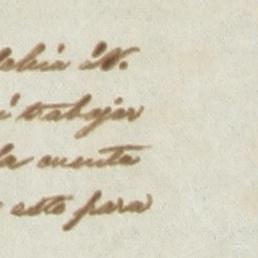 debia á N.
trabajar
la cuenta
este para